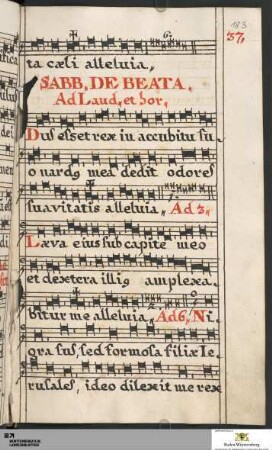 183
37,
6.
ta cœli alleluia,
SABB, DE BEATA,
Ad Laud, et hor,
Dus esset rex in accubitu su
o nardus mea dedit odores
suavitatis alleluia, Ad 3,
Læva eius sub capite meo
et dextera illius amplexa,
bitur me alleluia, Ad 6, Ni,
gra sus, sed formosa filiæ Ie
rusales, ideo dilexit me rex
Baden-Württemberg